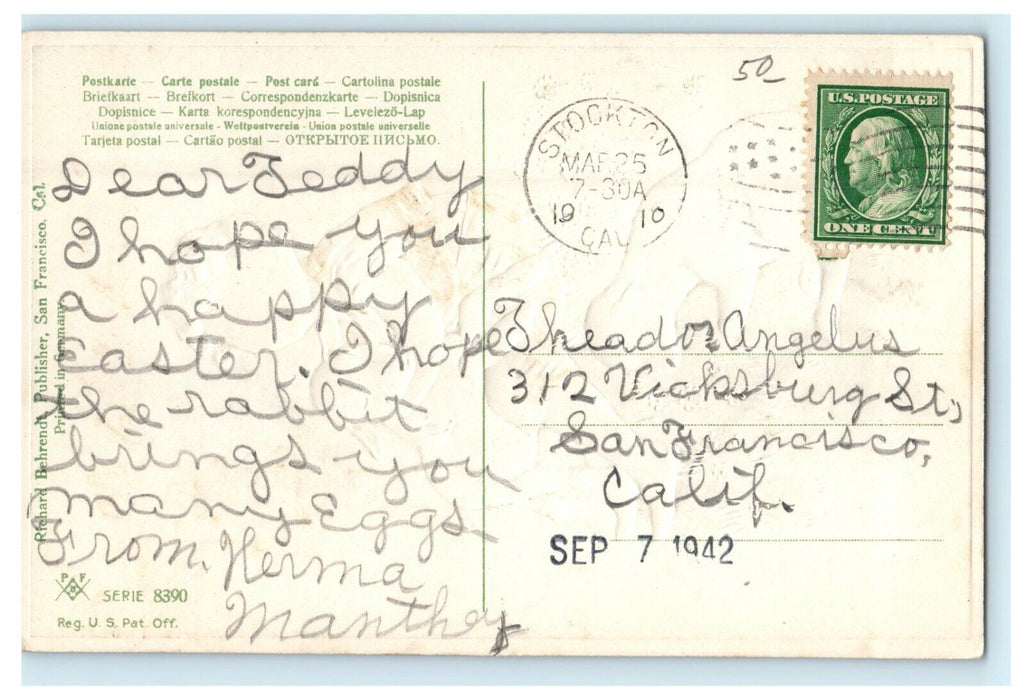 Postkarte — Carte postale — Post card — Cartolina postale
Briefkaart — Brefkort — Correspondenzkarte — Dopisnica
Dopisnice — Karta korespondencyjna — Levelező-Lap
Unione postale universale - Weltpostverein - Union postale universelle
Tarjeta postal — Cartão postal — ОТКРЫТОЕ ПИСЬМО.
Dear Teddy
I hope you
a happy
Easter. I hope
the rabbit
brings you
many Eggs
From, Herma
Manthey
Richard Behrendt, Publisher, San Francisco. Cal.
Printed in Germany
P F
B
SERIE 8390
Reg. U. S. Pat. Off.
50
STOCKTON
MAR 25
7-30A
19 10
CAL
U.S. POSTAGE
ONE CENT
Theador Angelus
312 Vicksburg St,
San Francisco,
Calif.
SEP 7 1942